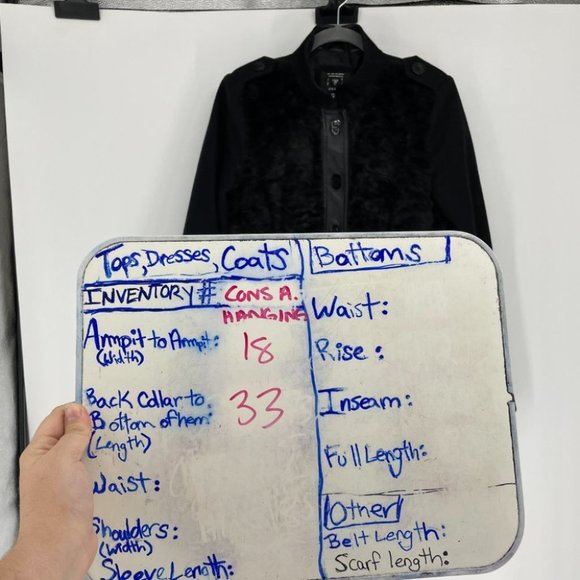 Tops, Dresses, Coats
INVENTORY # CONS A.
HANGING
Armpit to Armpit: 18
(Width)
Back Collar to
Bottom of hem: 33
(Length)
Waist:
Shoulders:
(Width)
Sleeve Length:
Bottoms
Waist:
Rise:
Inseam:
Full Length:
Other
Belt Length:
Scarf length: